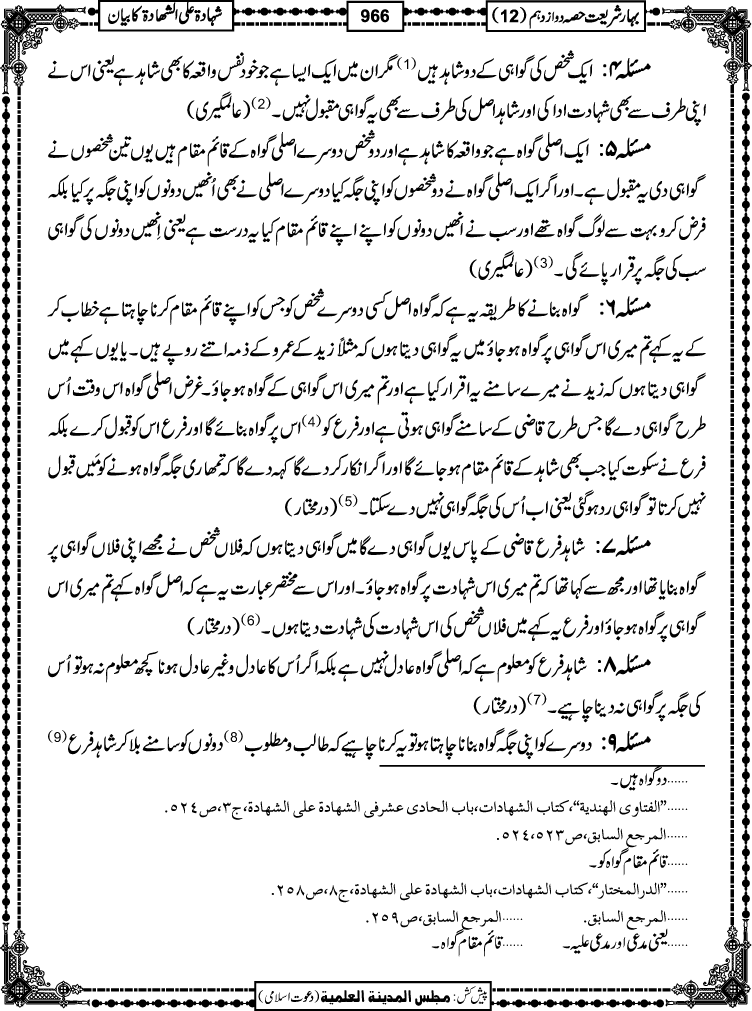 بہار شریعت حصہ دوازدہم (12)
966
شہادۃ علی الشھادۃ کا بیان
مسئلہ ۴: ایک شخص کی گواہی کے دو شاہد ہیں (1) مگر ان میں ایک ایسا ہے جو خود نفس واقعہ کا بھی شاہد ہے یعنی اس نے
اپنی طرف سے بھی شہادت ادا کی اور شاہد اصل کی طرف سے بھی یہ گواہی مقبول نہیں۔ (2) (عالمگیری)
مسئلہ ۵: ایک اصلی گواہ ہے جو واقعہ کا شاہد ہے اور دو شخص دوسرے اصلی گواہ کے قائم مقام ہیں یوں تین شخصوں نے
گواہی دی یہ مقبول ہے۔ اور اگر ایک اصلی گواہ نے دو شخصوں کو اپنی جگہ کیا دوسرے اصلی نے بھی اُنھیں دونوں کو اپنی جگہ پر کیا بلکہ
فرض کرو بہت سے لوگ گواہ تھے اور سب نے انھیں دونوں کو اپنے اپنے قائم مقام کیا یہ درست ہے یعنی اِنھیں دونوں کی گواہی
سب کی جگہ پر قرار پائے گی۔ (3) (عالمگیری)
مسئلہ ۶: گواہ بنانے کا طریقہ یہ ہے کہ گواہ اصل کسی دوسرے شخص کو جس کو اپنے قائم مقام کرنا چاہتا ہے خطاب کر
کے یہ کہے تم میری اس گواہی پر گواہ ہو جاؤ میں یہ گواہی دیتا ہوں کہ مثلاً زید کے عمرو کے ذمہ اتنے روپے ہیں۔ یا یوں کہے میں
گواہی دیتا ہوں کہ زید نے میرے سامنے یہ اقرار کیا ہے اور تم میری اس گواہی کے گواہ ہو جاؤ۔ غرض اصلی گواہ اس وقت اُس
طرح گواہی دے گا جس طرح قاضی کے سامنے گواہی ہوتی ہے اور فرع کو (4) اس پر گواہ بنائے گا اور فرع اس کو قبول کرے بلکہ
فرع نے سکوت کیا جب بھی شاہد کے قائم مقام ہو جائے گا اور اگر انکار کر دے گا کہہ دے گا کہ تمھاری جگہ گواہ ہونے کو مَیں قبول
نہیں کرتا تو گواہی رد ہوگئی یعنی اب اُس کی جگہ گواہی نہیں دے سکتا۔ (5) (درمختار)
مسئلہ ۷: شاہد فرع قاضی کے پاس یوں گواہی دے گا میں گواہی دیتا ہوں کہ فلاں شخص نے مجھے اپنی فلاں گواہی پر
گواہ بنایا تھا اور مجھ سے کہا تھا کہ تم میری اس شہادت پر گواہ ہو جاؤ۔ اور اس سے مختصر عبارت یہ ہے کہ اصل گواہ کہے تم میری اس
گواہی پر گواہ ہو جاؤ اور فرع یہ کہے میں فلاں شخص کی اس شہادت کی شہادت دیتا ہوں۔ (6) (درمختار)
مسئلہ ۸: شاہد فرع کو معلوم ہے کہ اصلی گواہ عادل نہیں ہے بلکہ اگر اُس کا عادل و غیر عادل ہونا کچھ معلوم نہ ہو تو اُس
کی جگہ پر گواہی نہ دینا چاہیے۔ (7) (درمختار)
مسئلہ ۹: دوسرے کو اپنی جگہ گواہ بنانا چاہتا ہو تو یہ کرنا چاہیے کہ طالب و مطلوب (8) دونوں کو سامنے بلا کر شاہد فرع (9)
......دو گواہ ہیں۔
......”الفتاوی الھندیة“، کتاب الشھادات، باب الحادی عشرفی الشھادة علی الشھادة، ج۳، ص۵۲٤.
......المرجع السابق، ص۵۲۳، ۵۲٤.
......قائم مقام گواہ کو۔
......”الدرالمختار“، کتاب الشھادات، باب الشھادة علی الشھادة، ج۸، ص۲۵۸.
......المرجع السابق. ......المرجع السابق، ص۲۵۹.
......یعنی مدعی اور مدعی علیہ۔ ......قائم مقام گواہ۔
پیش کش: مجلس المدینة العلمیة (دعوت اسلامی)